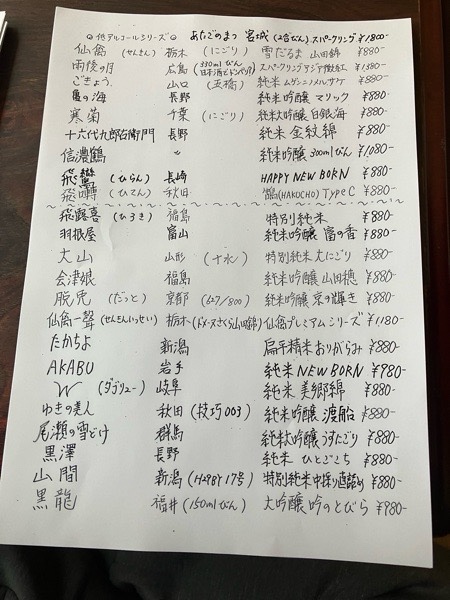 ◎低アルコールシリーズ◎ あたごのまつ 宮城 (2合びん) スパークリング ¥1800-
仙禽 (せんきん) 栃木 (にごり) 雪だるま 山田錦 ¥880-
雨後の月 広島 (330mlびん 日本酒ビドンペリ) スパークリングアジア微紅 ¥1380-
ごきょう 山口 (五橋) 純米 ムゲンニノメルサケ ¥880-
亀の海 長野 純米吟醸 マリック ¥880-
寒菊 千葉 (にごり) 純米大吟醸 白銀海 ¥880-
十六代九郎右衛門 長野 純米 金紋錦 ¥880-
信濃鶴 〃 純米吟醸 300mlびん ¥1080-
飛鸞 (ひらん) 長崎 HAPPY NEW BORN ¥880-
飛囀 (ひてん) 秋田 鵠(HAKOCHO) Type C ¥880-
飛露喜 (ひろき) 福島 特別純米 ¥880-
羽根屋 富山 純米吟醸 富の香 ¥880-
大山 山形 (十水) 特別純米 大にごり ¥880-
会津娘 福島 純米吟醸 山田穂 ¥880-
脱兎 (だっと) 京都 (647/800) 純米吟醸 京の輝き ¥880-
仙禽一聲 (せんきんいっせい) 栃木 (ドメーヌさくら山田錦) 仙禽プレミアムシリーズ ¥1180-
たかちよ 新潟 扁平精米おりがらみ ¥880-
AKABU 岩手 純米 NEW BORN ¥980-
W (ダブリュー) 岐阜 純米 美郷錦 ¥880-
ゆきの美人 秋田 (技巧003) 純米吟醸 渡船 ¥880-
尾瀬の雪どけ 群馬 純米大吟醸うすにごり ¥880-
黒澤 長野 純米 ひとごこち ¥880-
山間 新潟 (H29BY 17号) 特別純米 中採り直詰め ¥880-
黒龍 福井 (150mlびん) 大吟醸 吟のとびら ¥980-